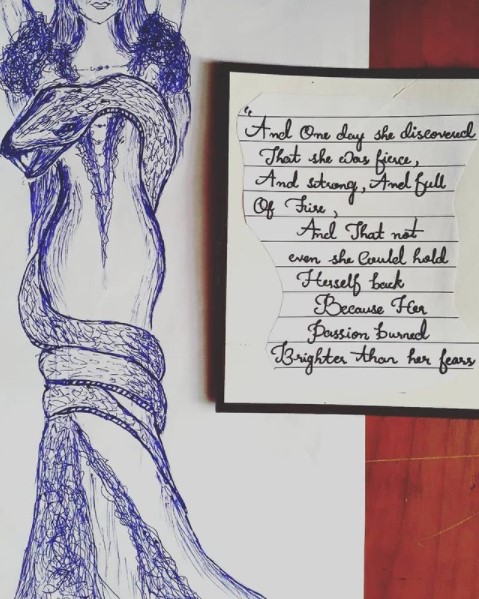 "And One day she discovered
That she was fierce,
And strong, And full
Of Fire,
And That not
even she Could hold
Herself back
Because Her
Passion burned
Brighter than her fears